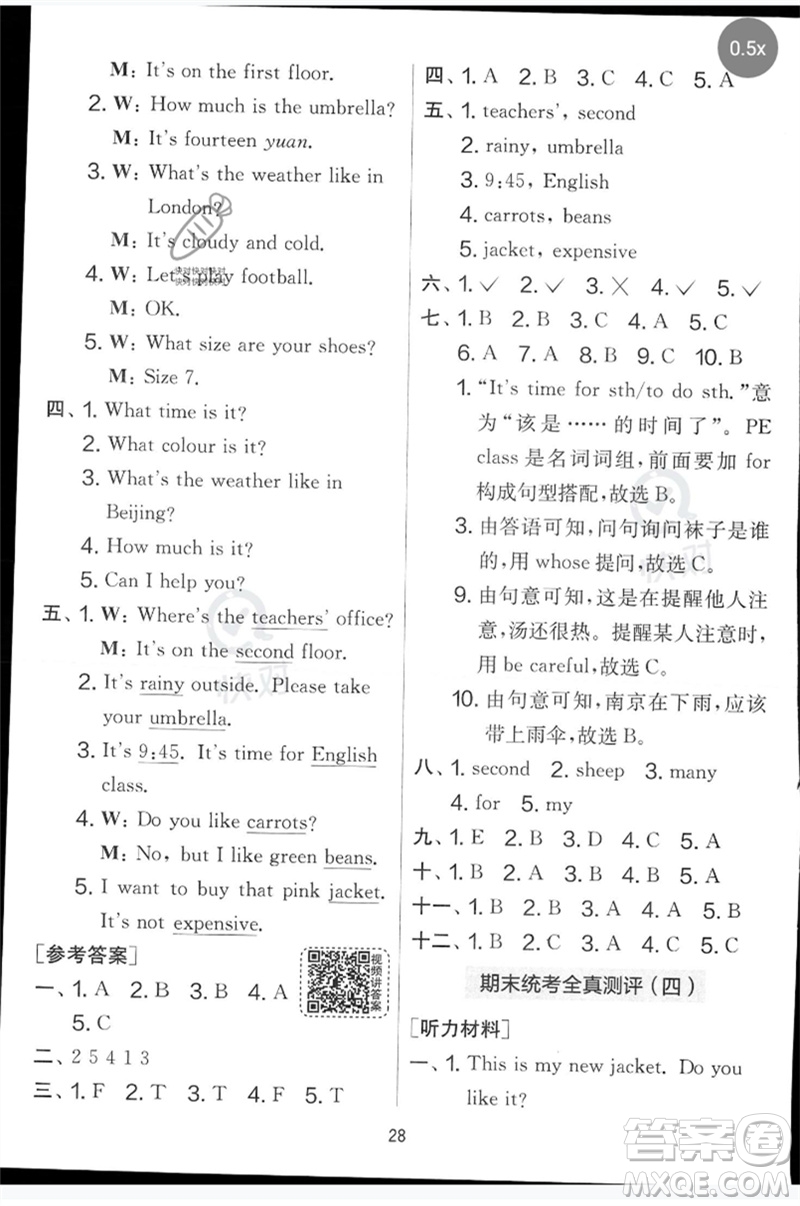 0.5x
M: It's on the first floor.
2. W: How much is the umbrella?
M: It's fourteen yuan.
3. W: What's the weather like in
London?
M: It's cloudy and cold.
4. W: Let's play football.
M: OK.
5. W: What size are your shoes?
M: Size 7.
四、1. What time is it?
2. What colour is it?
3. What's the weather like in
Beijing?
4. How much is it?
5. Can I help you?
五、1. W: Where's the teachers' office?
M: It's on the second floor.
2. It's rainy outside. Please take
your umbrella.
3. It's 9:45. It's time for English
class.
4. W: Do you like carrots?
M: No, but I like green beans.
5. I want to buy that pink jacket.
It's not expensive.
[参考答案]
视频讲答案
一、1. A 2. B 3. B 4. A
5. C
二、2 5 4 1 3
三、1. F 2. T 3. T 4. F 5. T
四、1. A 2. B 3. C 4. C 5. A
五、1. teachers', second
2. rainy, umbrella
3. 9:45, English
4. carrots, beans
5. jacket, expensive
六、1. ✓ 2. ✓ 3. ✗ 4. ✓ 5. ✓
七、1. B 2. B 3. C 4. A 5. C
6. A 7. A 8. B 9. C 10. B
1. “It's time for sth/to do sth.”意
为“该是……的时间了”。PE
class是名词词组,前面要加 for
构成句型搭配,故选 B。
3. 由答语可知,问句询问袜子是谁
的,用 whose 提问,故选 C。
9. 由句意可知,是在提醒他人注
意,汤还很热。提醒某人注意
用 be careful,故选 C。
10. 由句意可知,南京在下雨,应该
带上雨伞,故选 B。
八、1. second 2. sheep 3. many
4. for 5. my
九、1. E 2. B 3. D 4. C 5. A
十、1. B 2. A 3. C 4. A 5. B
十一、1. B 2. B 3. A 4. C 5. A
十二、1. B 2. B 3. C 4. A 5. C
期末统考全真测评(四)
[听力材料]
一、1. This is my new jacket. Do you
like it?
28
快对
快对
答案卷
MXQE.COM